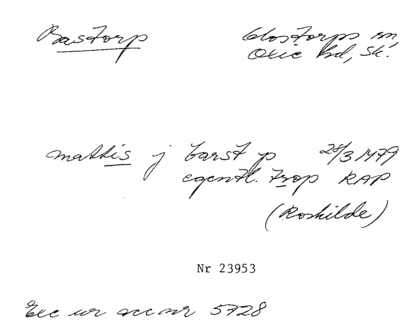 Bastorp
Closterps sn
Oxie hd, Sk.
mattis j barst p 28/3 1479
egentl. trop RAP
(Roskilde)
Nr 23953
Exc ur acc nr 5728